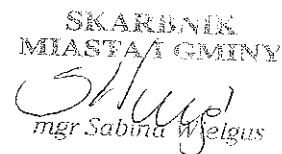 SKARBNIK
MIASTA I GMINY
mgr Sabina Wielgus